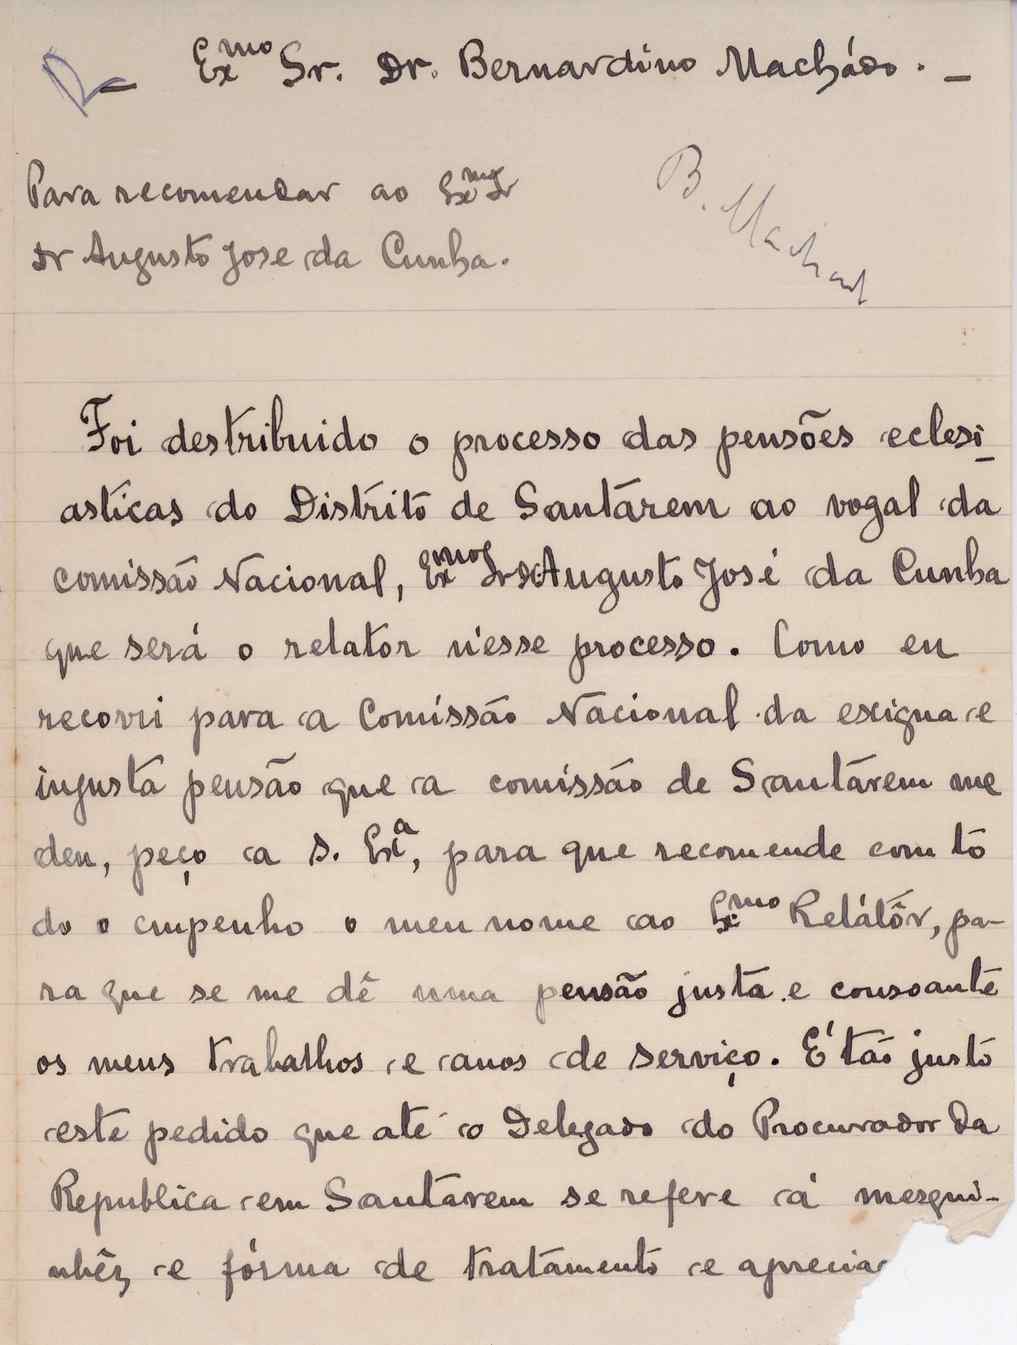 Exmo Sr. Dr. Bernardino Machádo. -
Para recomendar ao Exmo Sr
Dr Augusto Jose da Cunha.
B. Machad
Foi destribuido o processo das pensões eclesi-
asticas do Distrito de Santárem ao vogal da
comissão Nacional, Exmo Sr Dr Augusto José da Cunha
que será o relator n'esse processo. Como eu
recorri para a Comissão Nacional da exigua e
injusta pensão que a comissão de Santárem me
deu, peço a S. Exa, para que recomende com to
do o empenho o meu nome ao Exmo Relátôr, pa-
ra que se me dê uma pensão justa e consoante
os meus trabalhos e anos de serviço. É tão justo
este pedido que até o Delegado do Procurador da
Republica em Santarem se refere á mesqui-
nhêz e fórma de tratamento e aprecia